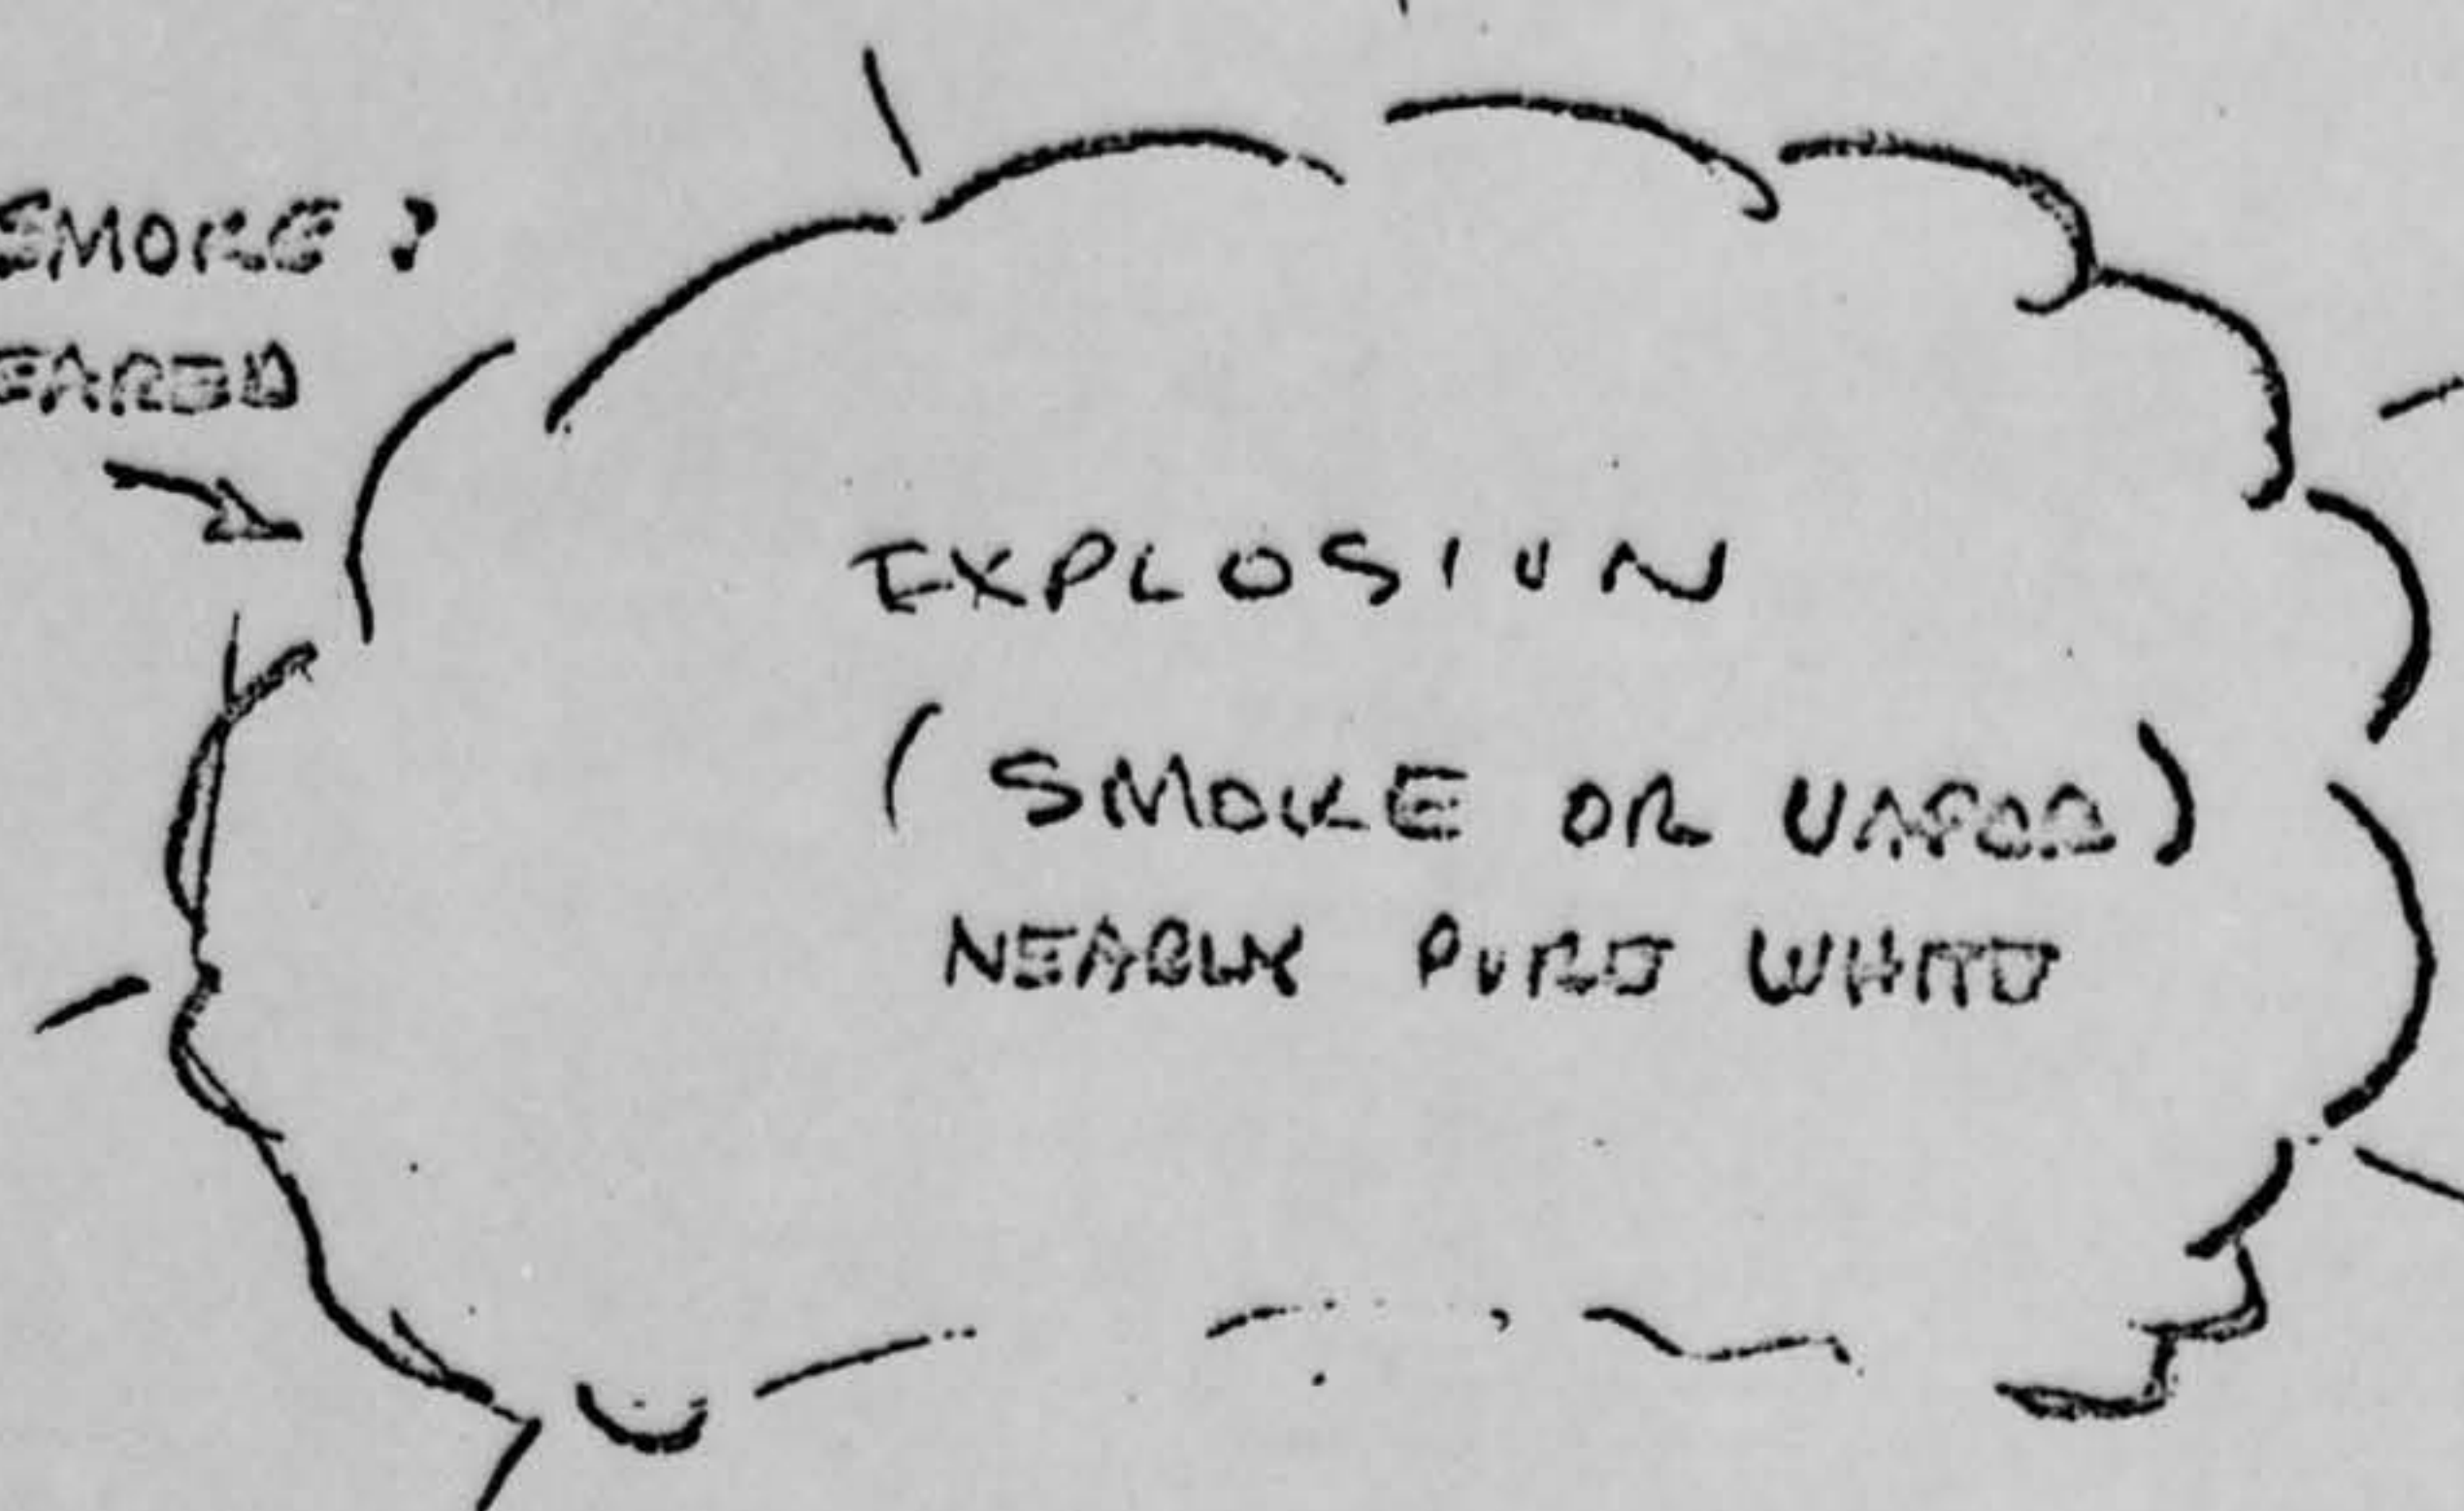 SMOKE?
EXPLOSION
(SMOKE OR VAPOR)
NEARLY PURE WHITE